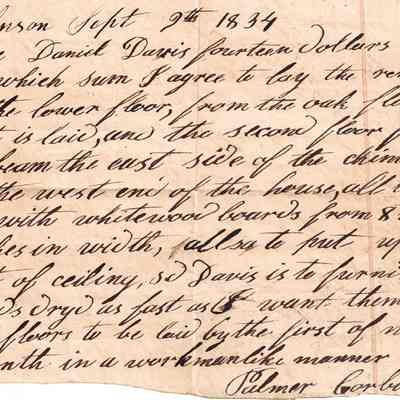 nson Sept 9th 1834
e Daniel Davis fourteen dollars
which sum I agree to lay the re
the lower floor, from the oak flo
t is laid, and the second floor f
beam the east side of the chim
the west end of the house, all
with whitewood boards from 8
hes in width, allso to put up
t of ceiling, sd Davis is to furni
ds dryd as fast as I want them
floors to be laid by the first of n
onth in a workmanlike manner
Palmer Corb